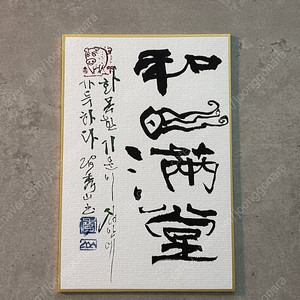 和氣滿堂
화목한 기운이 집안에
가득하다 秀山書